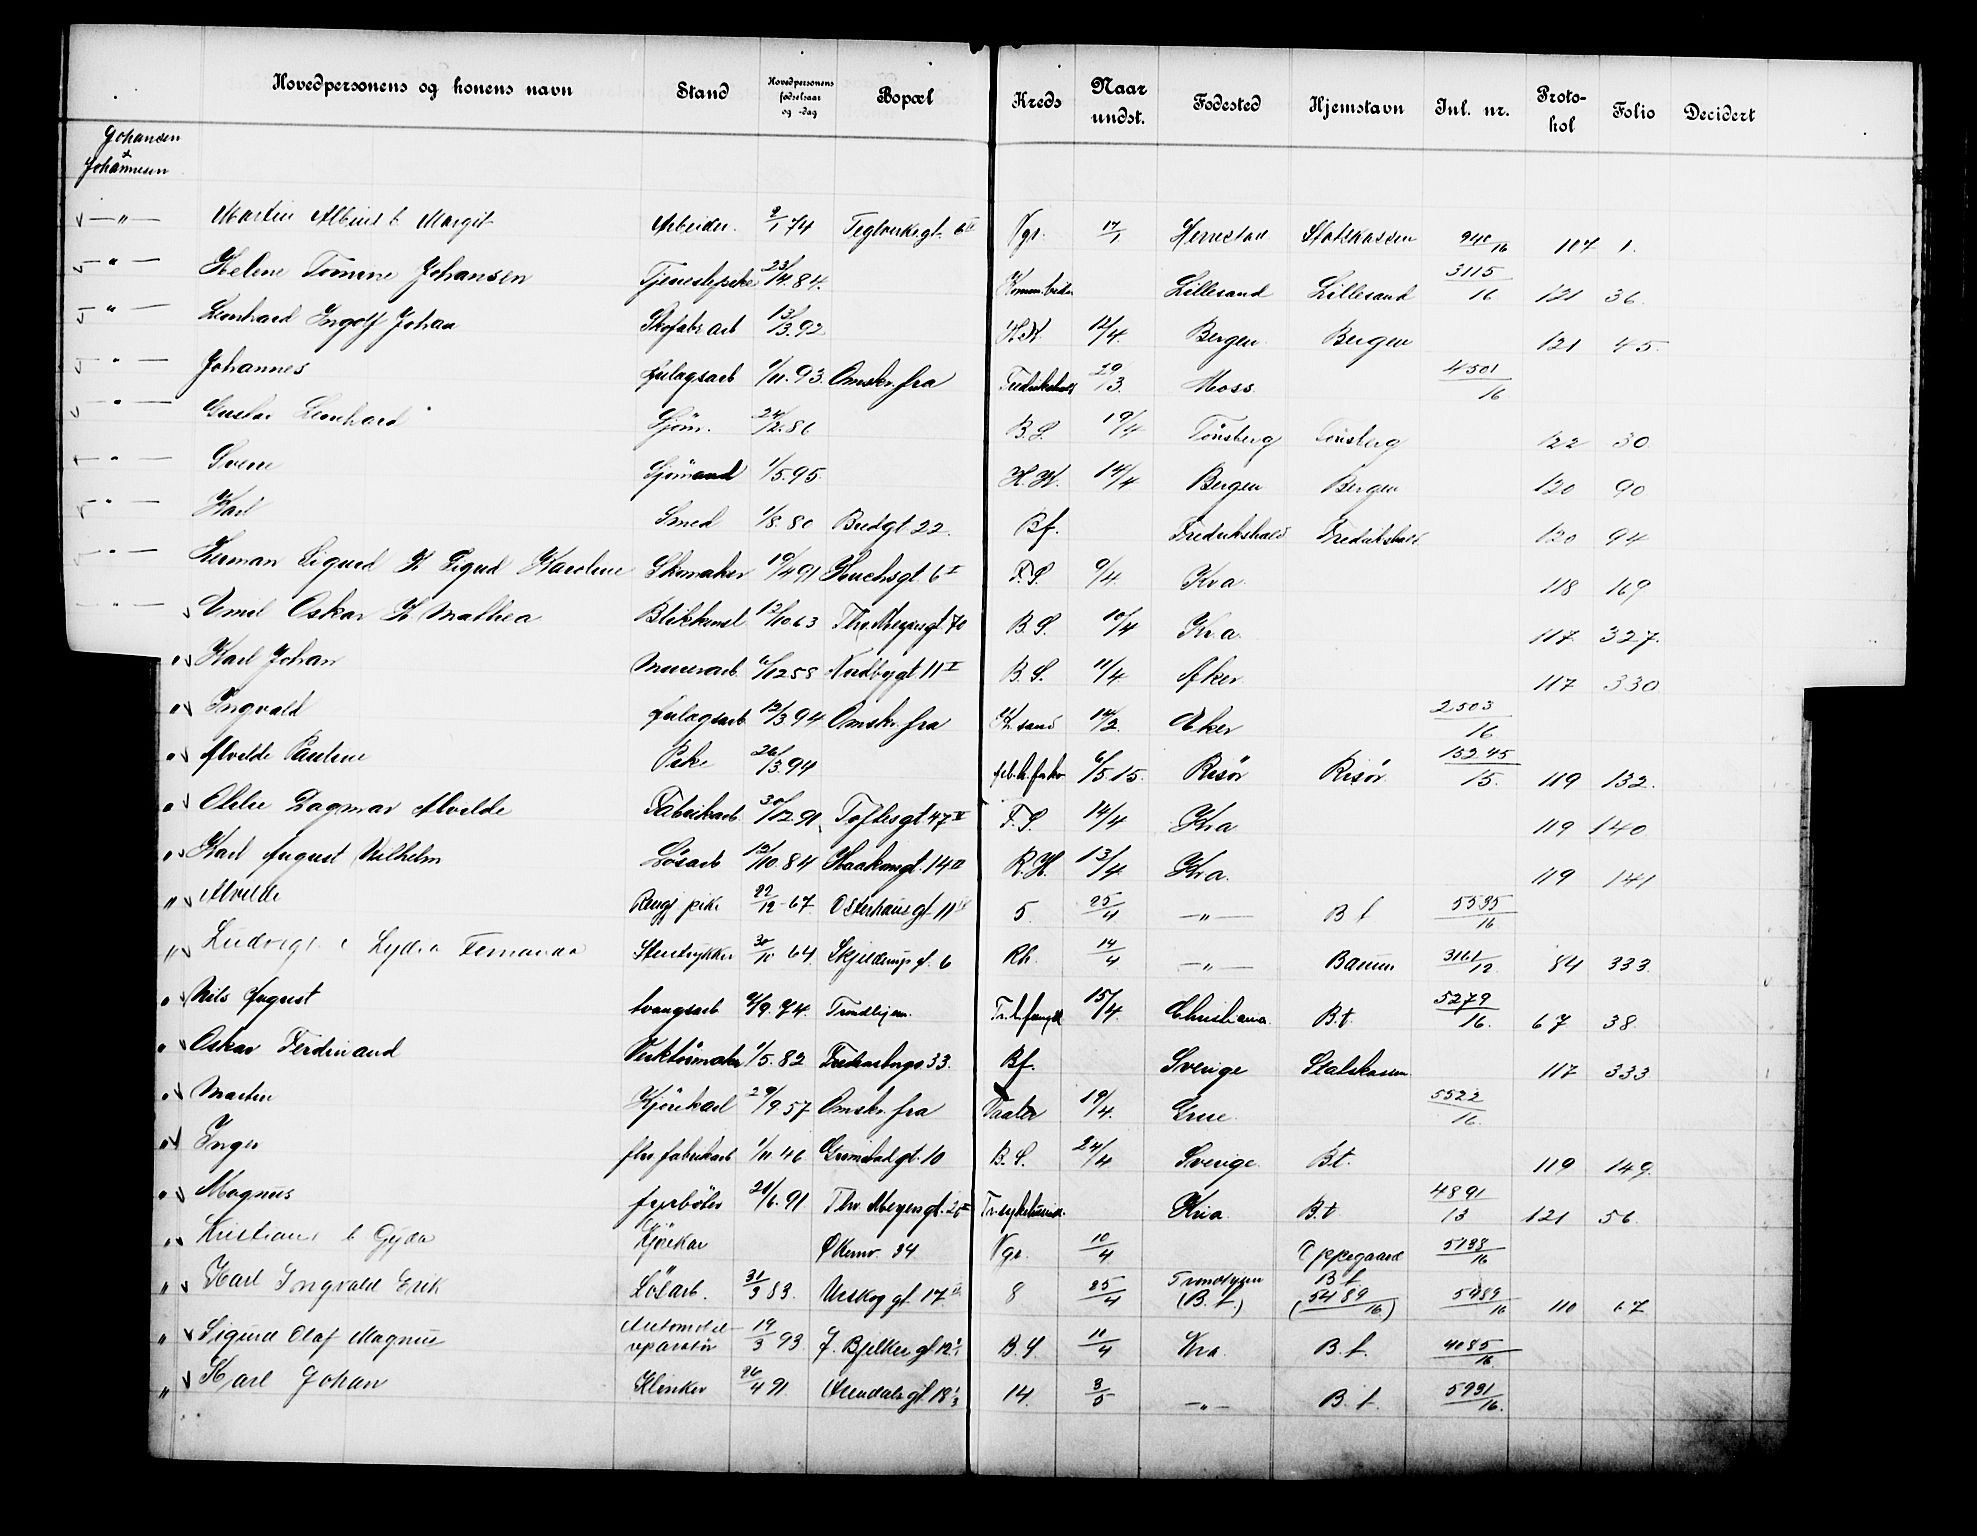 Hovedpersonens og konens navn Stand Hovedpersonens fødselsaar og -dag Bopæl Kreds Naar undst. Fødested Hjemstavn Inl. nr. Proto-kol Folio Decidert
Johansen
+
Johannesen
— " — Martin Albin & Margit Arbeider. 2/1 74 Teglverksgt. 6 Vgr. 17/1 Herrestad Statskassen 940/16 117 1.
— " — Helene Tomine Johansen Tjenestepike 23/4. 84. Lillesand Lillesand 3115/16 121 36.
— " — Leonhard Ingolf Johan Skofabr arb 13/3. 92 H.N. 12/4. Bergen Bergen 121 45.
— " — Johannes 1/11. 93. Omskr. fra Fredrikshald 29/3. Moss. 4501/16
— " — Gustav Leonhard Sjöm. 24/12. 86 B.S. 19/4 Tönsberg Tönsberg 122 30
— " — Svene Sjömand 1/5. 95. H.N. 14/4 Bergen Bergen 120 90
— " — Karl Smed 1/8. 80 Bredgt 22. Bf. Fredrikshald Fredrikshald 120 94
— " — Herman Sigurd H. Sigrid Karoline Skomaker 19/4 91 6 I F.S. 9/4. Kra 118 169
— " — Emil Oskar H Mathea Blikkensl 12/10 63 Thv. Meyersgt. 70 B.S. 10/4 Kra. 117. 327.
" Karl Johan Murerarb. 6/12 58 Nordbygt 11 I B.S. 11/4. Aker 117 330
" Ingvald 12/3 94 Omskr. fra Kr. sand 14/2. Aker 2503/16
" Alvilde Pauline Pike 26/3. 94 6/5. 15. Risör Risör 15245/15. 119 132.
" Dagmar Alvilde Fabrikarb. 30/12. 91. Toftesgt 47 IV F.S. 14/4 Kra 119 140
" Karl August Vilhelm Lösarb 12/10. 84 Haakonsgt. 14 II R.H. 13/4 Kra. 119 141
" Alvilde Rengj. pike 22/12 67. Osterhausgt. 11 5. 25/4 — " — B t 5535/16.
" Ludvig & Lydia Fernanda Stentrykker 30/10 64. Skjoldrups gt. 6 Rh. 14/4 — " — Bærum 3161/12 84 333.
" Nils August tvangsarb 2/9. 74. Trondhjem. 15/4. Christiania B.t. 5279/16. 67 38.
" Oskar Ferdinand Verktöimaker 1/5. 82 Fredensborgv. 33. Bf. Sverige Statskassen. 117 333
" Martin Kjörekarl 29/9. 57 Omskr. fra Vaaler 19/4. Grue. 5522/16.
" Inger fhv. fabrikarb 1/11. 46 Grimstadgt. 10 B.S. 24/4 Sverige. B.t. 119 149.
" Magnus fyrböter 21/6. 91 Thv. Meyersgt. 26 II Kria B.t. 4891/13 121 56.
" Kristian & Gyda Kjörekar Økernv. 34 Vgr. 10/4 Oppegaard 5138/16
" Karl Ingvald Erik Lösarb. 31/3 83. Urskog gt. 17 8 25/4 Trondhjem (B.t.) B t (5489/16) 5489/16 110 67.
" Sigurd Olaf Magnus Automobil-reparatör 19/3 93. J. Bjelkes gt 12 B.S. 11/4 Kra. B.t. 4085/16
" Karl Johan Klinker 26/4 91. Arendalsgt. 18 14. 3/5 — " — B. t. 5931/16.